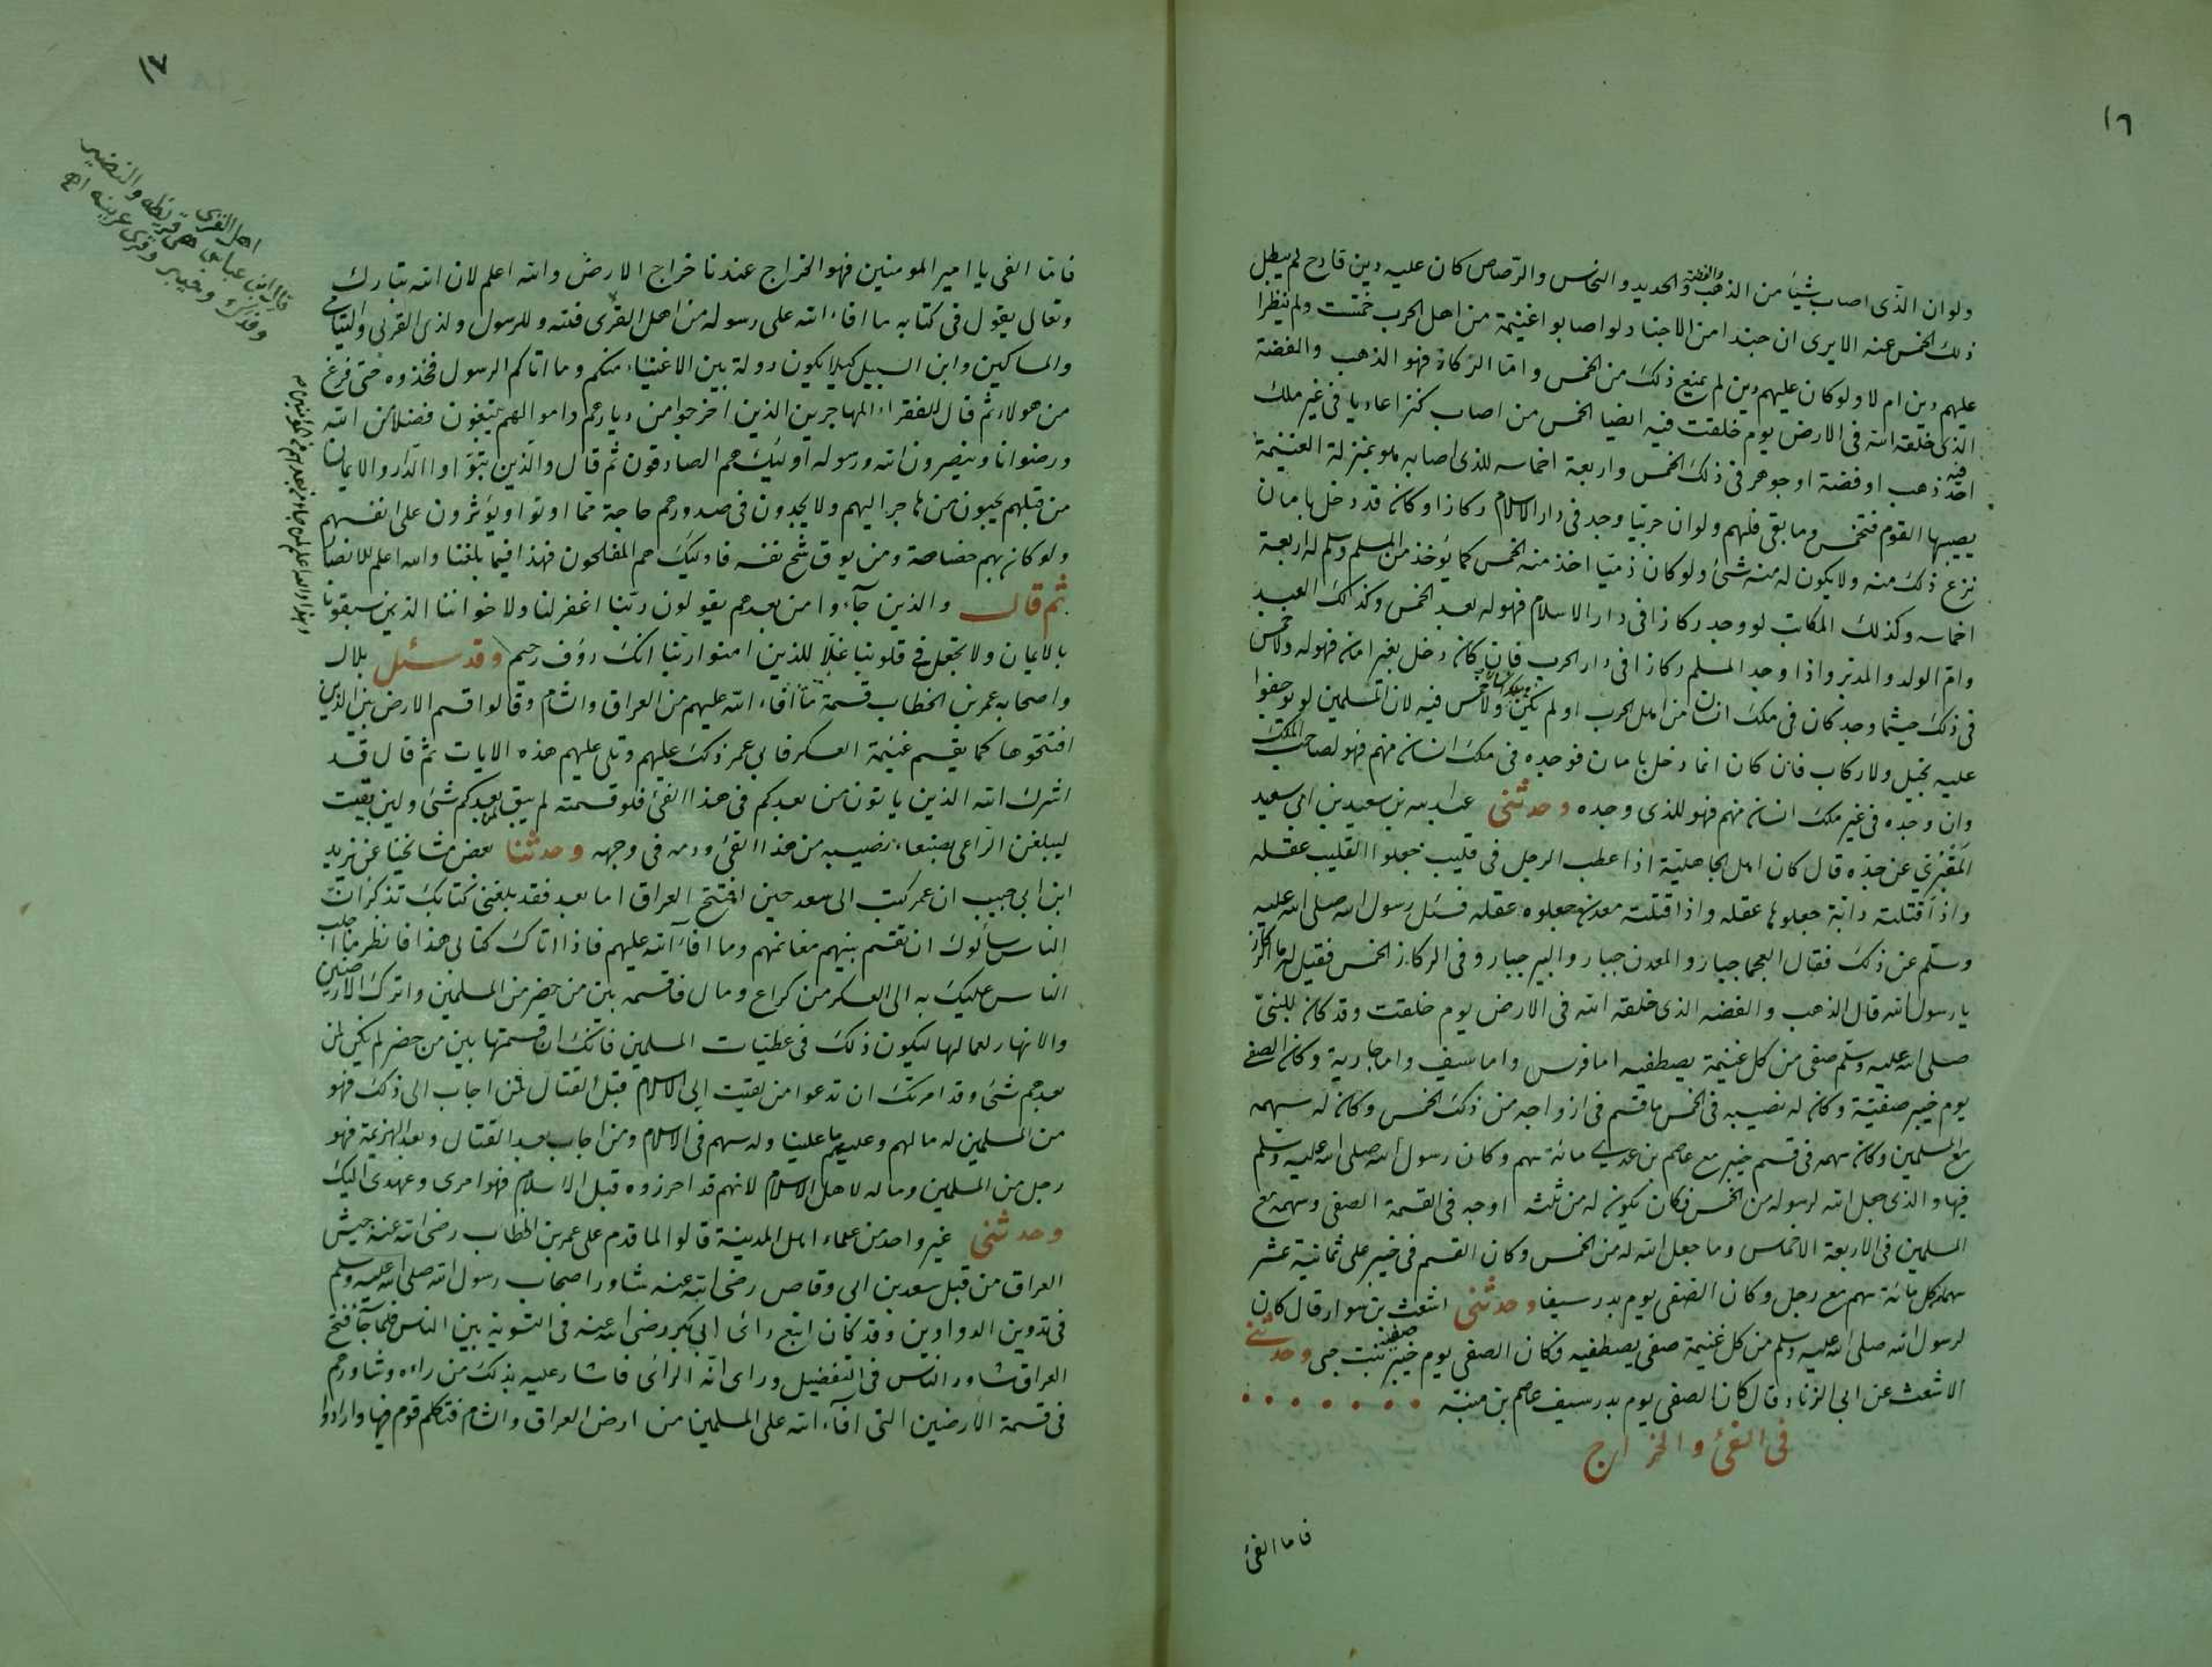 ١٦
ولو ان الذى اصاب شيئا من الذهب والفضة والحديد والنحاس والرصاص كان عليه دين قادح لم يبطل
ذلك الخمس عنه الا يرى ان جندا من الاجناد لو اصابوا غنيمة من اهل الحرب خمست ولم ينظر ا
عليهم دين ام لا ولو كان عليهم دين لم يمنع ذلك من الخمس واما الركاز فهو الذهب والفضة
الذى خلقه الله فى الارض يوم خلقت فيه ايضا الخمس من اصاب كنزا عاديا فى غير ملك
احد فيه ذهب او فضة او جوهر فى ذلك الخمس واربعة اخماسه للذى اصابه هو بمنزلة الغنيمة
يصيبها القوم فتخمس وما بقى فلهم ولو ان حربيا وجد فى دار الاسلام ركازا وكان قد دخل بامان
نزع ذلك منه ولا يكون له منه شئ ولو كان ذميا اخذ منه الخمس كما يؤخذ من المسلم وسلم له اربعة
اخماسه وكذلك المكاتب لو وجد ركازا فى دار الاسلام فهو له بعد الخمس وكذلك العبد
وام الولد والمدبر واذا وجد المسلم ركازا فى دار الحرب فان كان دخل بغير امان فهو له ولا خمس
فى ذلك حيثما وجد كان فى ملك انسان من اهل الحرب او لم يكن ولا خمس فيه لان المسلمين لم يوجفوا
عليه بخيل ولا ركاب فان كان انما دخل بامان فوجده فى ملك انسان منهم فهو لصاحب الملك
وان وجده فى غير ملك انسان منهم فهو للذى وجده وحدثنى عبد الله بن سعيد بن ابى سعيد
المقبرى عن جده قال كان اهل الجاهلية اذا عطب الرجل فى قليب جعلوا القليب عقله
واذا قتلته دابة جعلوها عقله واذا قتلته معدن جعلوه عقله فسئل رسول الله صلى الله عليه
وسلم عن ذلك فقال العجما جبار والمعدن جبار والبير جبار وفى الركاز الخمس فقيل له ما الركاز
يا رسول الله قال الذهب والفضه الذى خلقه الله فى الارض يوم خلقت وقد كان للنبى
صلى الله عليه وسلم صفى من كل غنيمة يصطفيه اما فرس واما سيف واما جارية وكان الصفى
يوم خيبر صفية وكان له نصيبه فى الخمس ما قسم فى ازواجه من ذلك الخمس وكان له سهمه
مع المسلمين وكان سهمه فى قسم خيبر مع عاصم بن عدى مائة سهم وكان رسول الله صلى الله عليه وسلم
فيها والذى جعل الله لرسوله من الخمس فكان يكون له من ثلثه اوجه فى القسمة الصفى وسهمه مع
المسلمين فى الاربعة الاخماس وما جعل الله له من الخمس وكان القسم فى خيبر على ثمانية عشر
سهما كل مائة سهم مع رجل وكان الصفى يوم بدر سيفا وحدثنى اشعث بن سوار قال كان
لرسول الله صلى الله عليه وسلم من كل غنيمة صفى يصطفيه فكان الصفى يوم خيبر صفية بنت حيى وحدثنى
الاشعث عن ابى الزناد قال كان الصفى يوم بدر سيف عاصم بن منبه
فى الفئ والخراج
فاما الفئ
١٧
فاما الفى يا امير المومنين فهو الخراج عندنا خراج الارض والله اعلم لان الله تبارك
وتعالى يقول فى كتابه ما افاء الله على رسوله من اهل القرى فلله وللرسول ولذى القربى واليتامى
والمساكين وابن السبيل كيلا يكون دولة بين الاغنياء منكم وما اتاكم الرسول فخذوه حتى فرغ
من هولاء ثم قال للفقراء المهاجرين الذين اخرجوا من ديارهم واموالهم يبتغون فضلا من الله
ورضوانا وينصرون الله ورسوله اوليك هم الصادقون ثم قال والذين تبؤاوا الدار والايمان
من قبلهم يحبون من هاجر اليهم ولا يجدون فى صدورهم حاجة مما اوتوا ويؤثرون على انفسهم
ولو كان بهم خصاصة ومن يوق شح نفسه فاوليك هم المفلحون فهذا فيما بلغنا والله اعلم للانصار
ثم قال والذين جاءوا من بعدهم يقولون ربنا اغفر لنا ولاخواننا الذين سبقونا
بالايمان ولا تجعل فى قلوبنا غلا للذين امنوا ربنا انك رؤف رحيم وقد سئل بلال
واصحابه عمر بن الخطاب قسمة ما افاء الله عليهم من العراق والشام وقالوا قسم الارض بين الذين
افتتحوها كما يقسم غنيمة العسكر فابى عمر ذلك عليهم وتلى عليهم هذه الايات ثم قال قد
اشرك الله الذين ياتون من بعدكم فى هذا الفئ فلو قسمته لم يبق لمن بعدكم شئ ولين بقيت
ليبلغن الراعى بصنعاء نصيبه من هذا الفئ ودمه فى وجهه وحدثنا بعض مشائخنا عن يزيد
ابن ابى حبيب ان عمر كتب الى سعد حين افتتح العراق اما بعد فقد بلغنى كتابك تذكر ان
الناس سألوك ان تقسم بينهم مغانمهم وما افاء الله عليهم فاذا اتاك كتابى هذا فانظر ما اجلب
الناس عليك به الى العسكر من كراع ومال فاقسمه بين من حضر من المسلمين واترك الارضين
والانهار لعمالها ليكون ذلك فى عطيات المسلمين فانك ان قسمتها بين من حضر لم يكن لمن
بعدهم شئ وقد امرتك ان تدعوا من لقيت الى الاسلام قبل القتال فمن اجاب الى ذلك فهو
من المسلمين له ما لهم وعليه ما عليهم وله سهم فى الاسلام ومن اجاب بعد القتال وبعد الهزيمة فهو
رجل من المسلمين وماله لاهل الاسلام لانهم قد احرزوه قبل الاسلام فهو امرى وعهدى اليك
وحدثنى غير واحد من علماء اهل المدينة قالوا لما قدم على عمر بن الخطاب رضى الله عنه جيش
العراق من قبل سعد بن ابى وقاص رضى الله عنه شاور اصحاب رسول الله صلى الله عليه وسلم
فى تدوين الدواوين وقد كان اتبع رأى ابى بكر رضى الله عنه فى التسوية بين الناس فلما جآء فتح
العراق شاور الناس فى التفضيل وراى انه الراى فاشار عليه بذلك من راءه وشاورهم
فى قسمة الارضين التى افآء الله على المسلمين من ارض العراق والشام فتكلم قوم فيها وارادوا
اهل القرى
قال ابن عباس هى قريظه والنضير
وفدك وخيبر وقرى عرينه اه
وهذا والله اعلم لمن جاء من بعدهم من المؤمنين